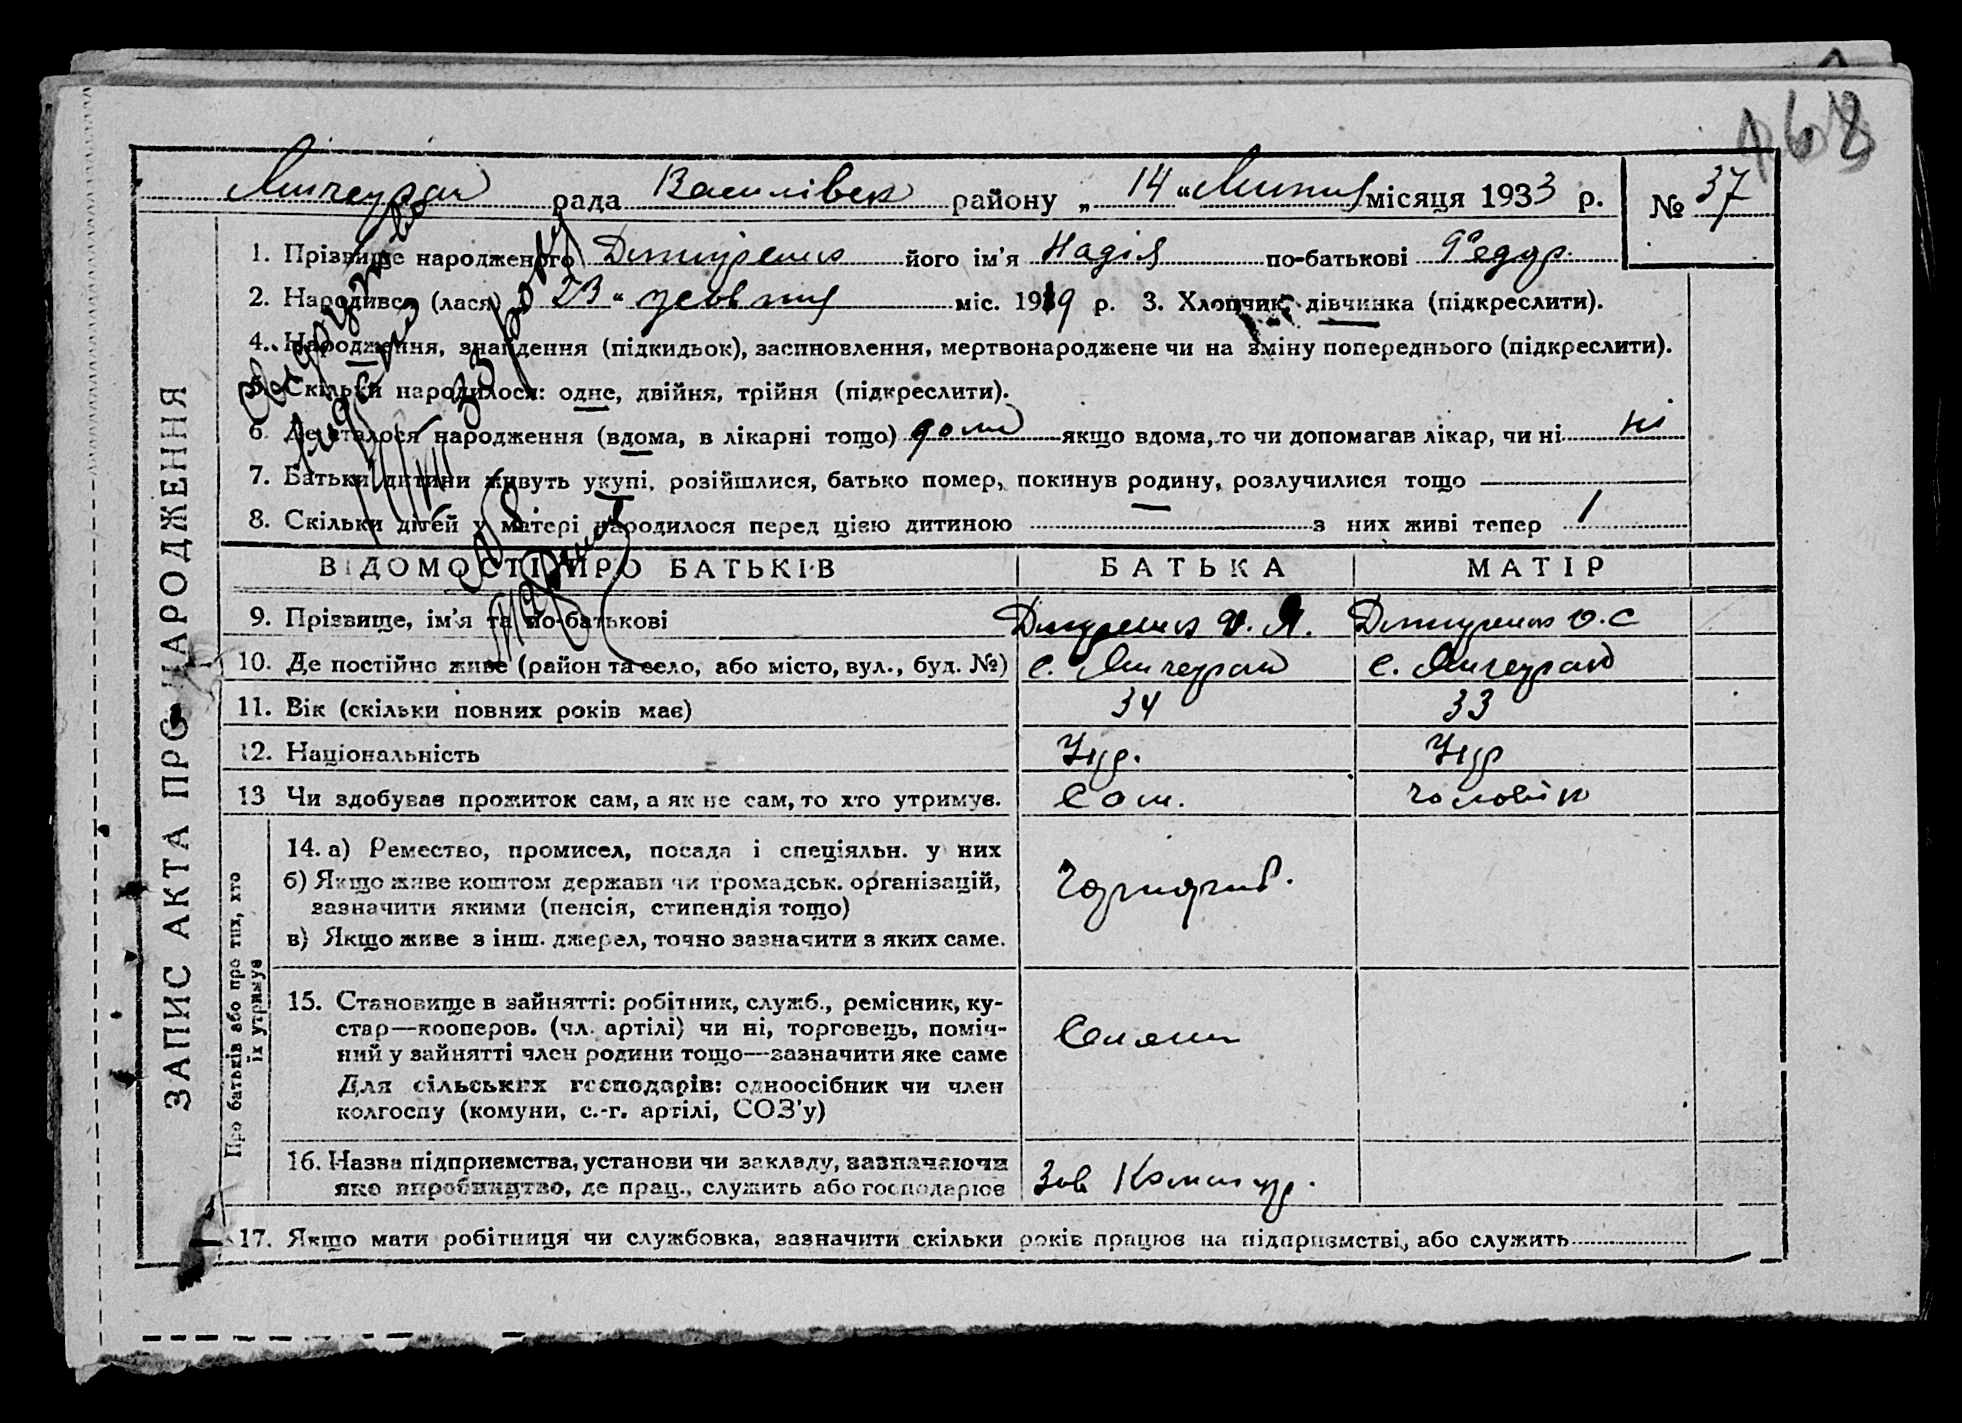 168
рада Василівск району „ 14 “ Липня місяця 1933 р. № 37
1. Прізвище народженого його ім'я Надія по-батькові Федор.
2. Народивсь (лася) „ 23 “ жовтня міс. 1919 р. 3. Хлопчик, дівчинка (підкреслити).
4. Народження, знайдення (підкидьок), засиновлення, мертвонароджене чи на зміну попереднього (підкреслити).
5. Скільки народилося: одне, двійня, трійня (підкреслити).
6. Де сталося народження (вдома, в лікарні тощо) дома якщо вдома, то чи допомагав лікар, чи ні ні
7. Батьки дитини живуть укупі, розійшлися, батько помер, покинув родину, розлучилися тощо
8. Скільки дітей у матері народилося перед цією дитиною з них живі тепер 1
33 року
ВІДОМОСТІ ПРО БАТЬКІВ БАТЬКА МАТІР
9. Прізвище, ім'я та по-батькові
10. Де постійно живе (район та село, або місто, вул., буд. №) с. с.
11. Вік (скільки повних років має) 34 33
12. Національність Укр. Укр
13 Чи здобував прожиток сам, а як не сам, то хто утримує. Сам. чоловік
14. а) Ремество, промисел, посада і спеціяльн. у них
б) Якщо живе коштом держави чи громадськ. організацій,
зазначити якими (пенсія, стипендія тощо)
в) Якщо живе з інш. джерел, точно зазначити з яких саме.
15. Становище в зайнятті: робітник, служб., ремісник, ку-
стар—кооперов. (чл. артілі) чи ні, торговець, поміч-
ний у зайнятті член родини тощо—зазначити яке саме
Для сільських господарів: одноосібник чи член
колгоспу (комуни, с.-г. артілі, СОЗ'у)
16. Назва підприємства, установи чи закладу, зазначаючи
яке виробництво, де прац., служить або господарює
17. Якщо мати робітниця чи службовка, зазначити скільки років працює на підприємстві, або служить
ЗАПИС АКТА ПРО НАРОДЖЕННЯ
Про батьків або про тих, хто
їх утримує